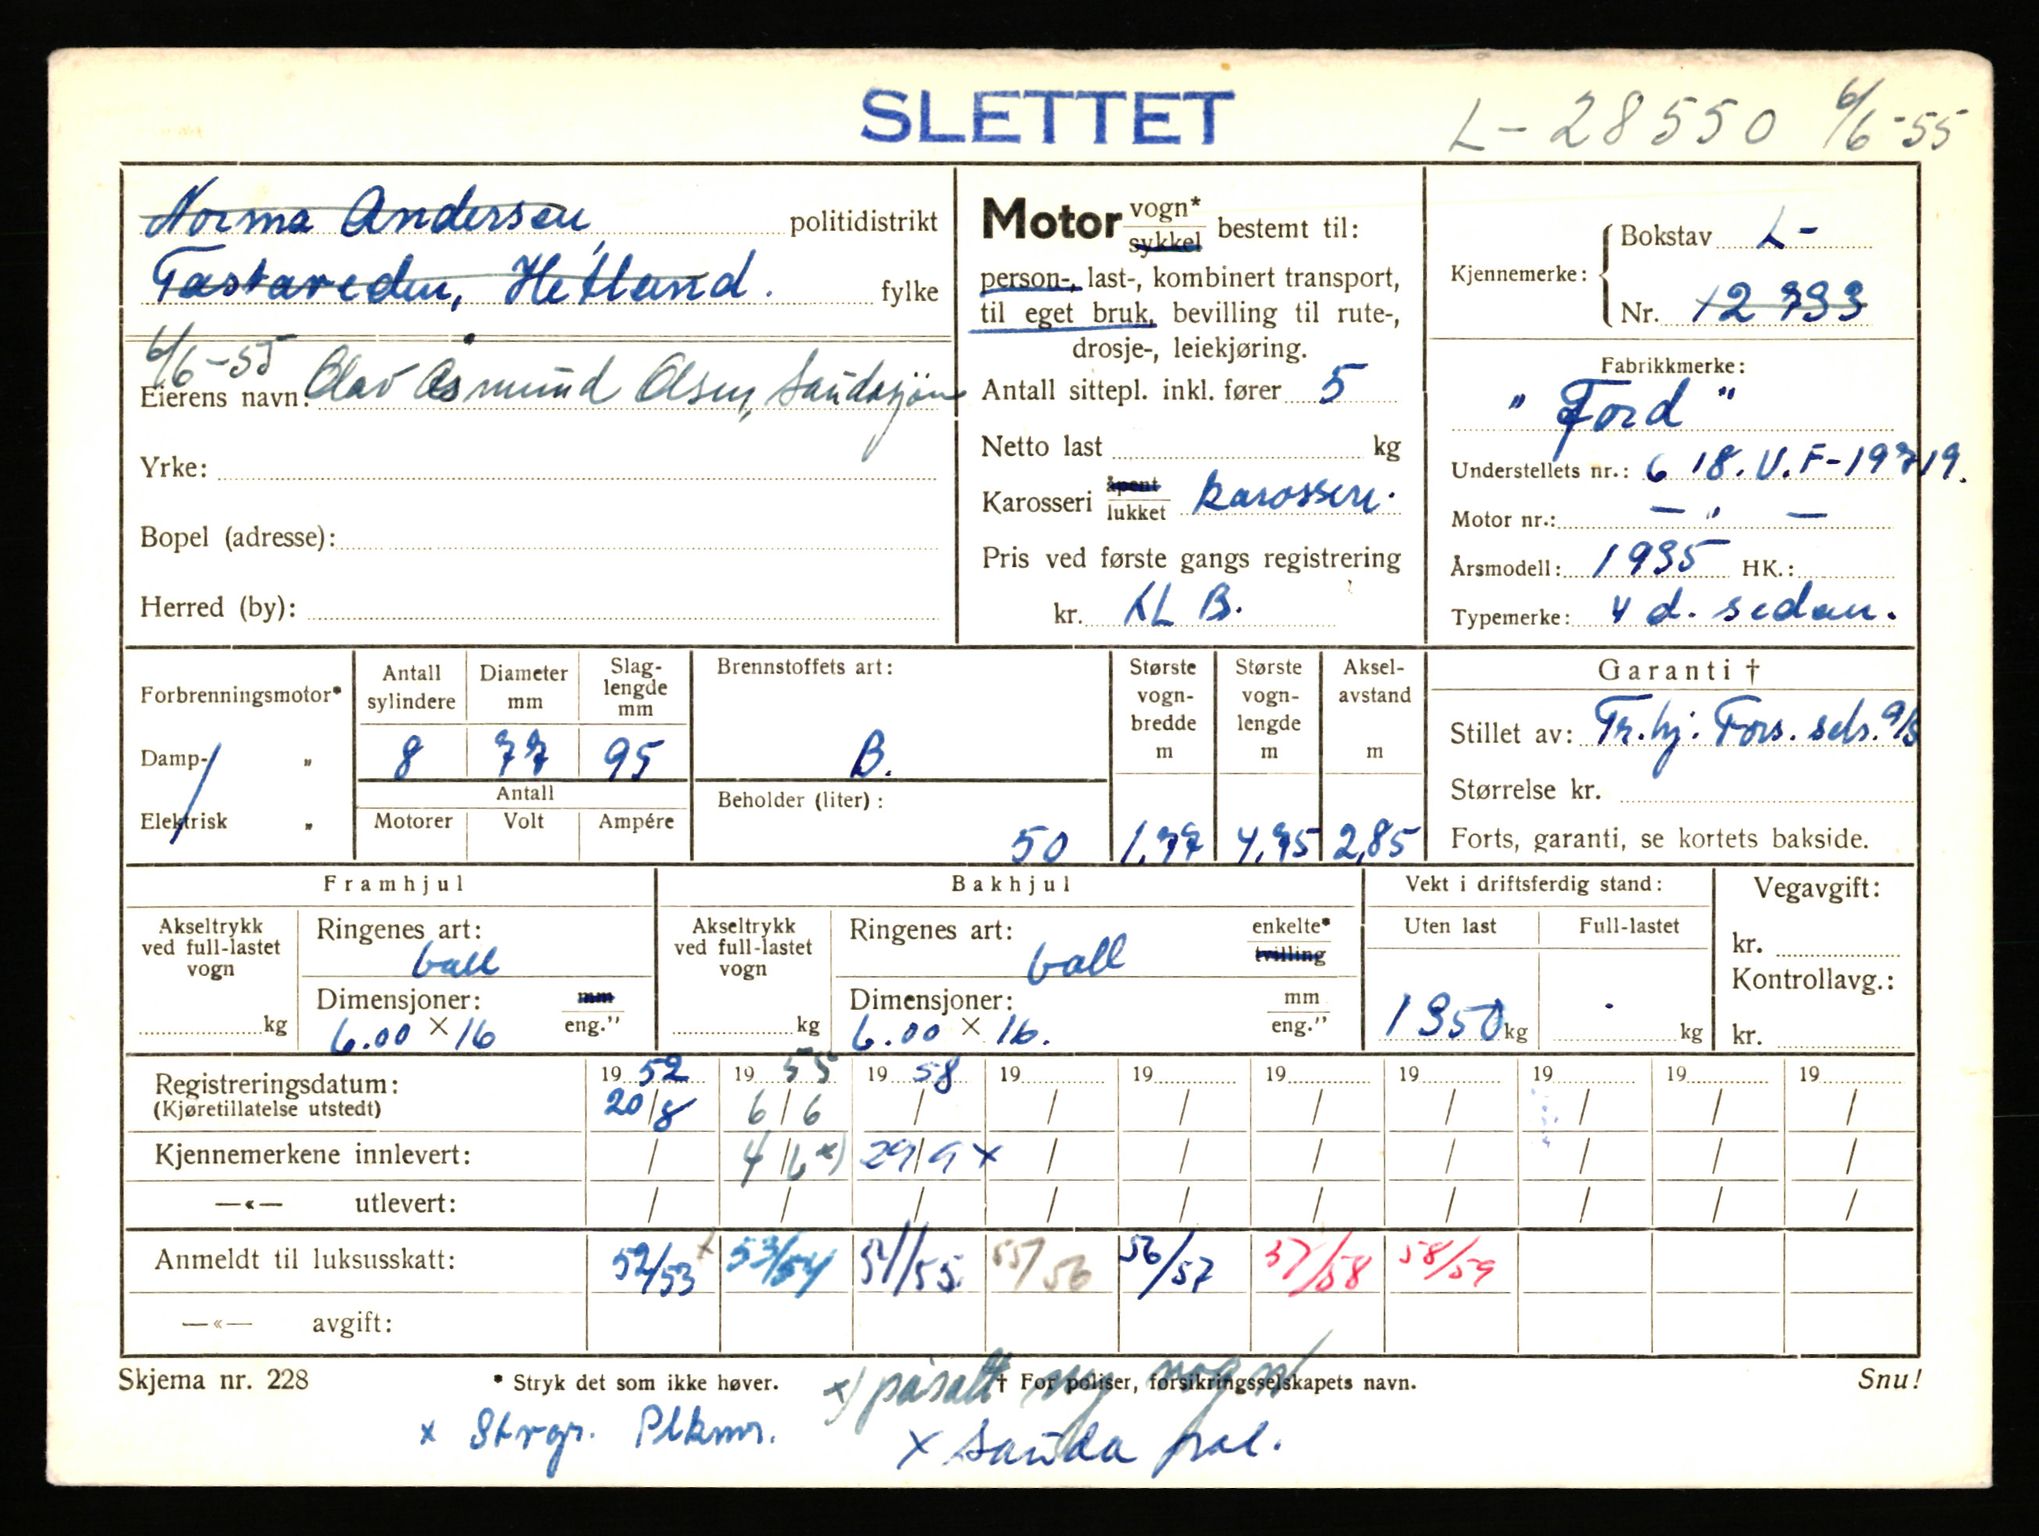 SLETTET
L-28550 6/6-55
Norma Andersen, politidistrikt
Tastaveden, Hetland. fylke
6/6-55
Eierens navn: Olav Asmund Olsen, Saudasjøen
Yrke:
Bopel (adresse):
Herred (by):
Motor vogn* sykkel bestemt til:
person-, last-, kombinert transport,
til eget bruk, bevilling til rute-,
drosje-, leiekjøring.
Antall sittepl. inkl. fører 5
Netto last kg
Karosseri åpent lukket karosseri.
Pris ved første gangs registrering
kr. KL B.
Kjennemerke: Bokstav L-
Nr. 12733
Fabrikkmerke:
"Ford"
Understellets nr.: 6 18. U.F-19719.
Motor nr.: — " —
Årsmodell: 1935 HK.:
Typemerke: 4 d. sedan.
Forbrenningsmotor*
Damp- „
Elektrisk „
Antall sylindere
Diameter mm
Slag-lengde mm
8 77 95
Antall
Motorer Volt Ampére
Brennstoffets art:
B.
Beholder (liter):
50
Største vogn-bredde m
1,77
Største vogn-lengde m
4,75
Aksel-avstand m
2,85
Garanti †
Stillet av: Tr.hj. Fors. sels. 9/5
Størrelse kr.
Forts, garanti, se kortets bakside.
Framhjul
Akseltrykk ved full-lastet vogn
kg
Ringenes art:
ball
Dimensjoner: mm eng."
6.00 × 16
Bakhjul
Akseltrykk ved full-lastet vogn
kg
Ringenes art: enkelte* tvilling
ball
Dimensjoner: mm eng."
6.00 × 16.
Vekt i driftsferdig stand:
Uten last Full-lastet
1350 kg kg
Vegavgift:
kr.
Kontrollavg.:
kr.
Registreringsdatum: 19 52 19 55 19 58 19 19 19 19 19 19 19
(Kjøretillatelse utstedt) 20/8 6/6 / / / / / / / /
Kjennemerkene innlevert: / 4/6 x) 29/9 x / / / / / / /
—«— utlevert: / / / / / / / / / /
Anmeldt til luksusskatt: 52/53 x 53/54 54/55. 55/56 56/57 57/58 58/59
—«— avgift:
Skjema nr. 228 * Stryk det som ikke høver. † For poliser, forsikringsselskapets navn. Snu!
x) påsatt ny vogn
x Strgr. Plkmr. x Sauda pol.